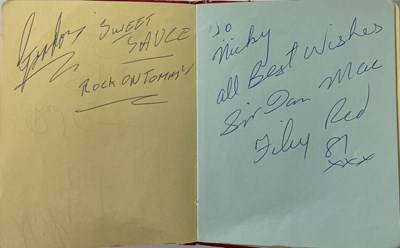 SWEET
SAUCE
ROCK ON TOMMY
To
Nicky
all Best Wishes
Sir Dan Mac
Filey Red
87
xxx